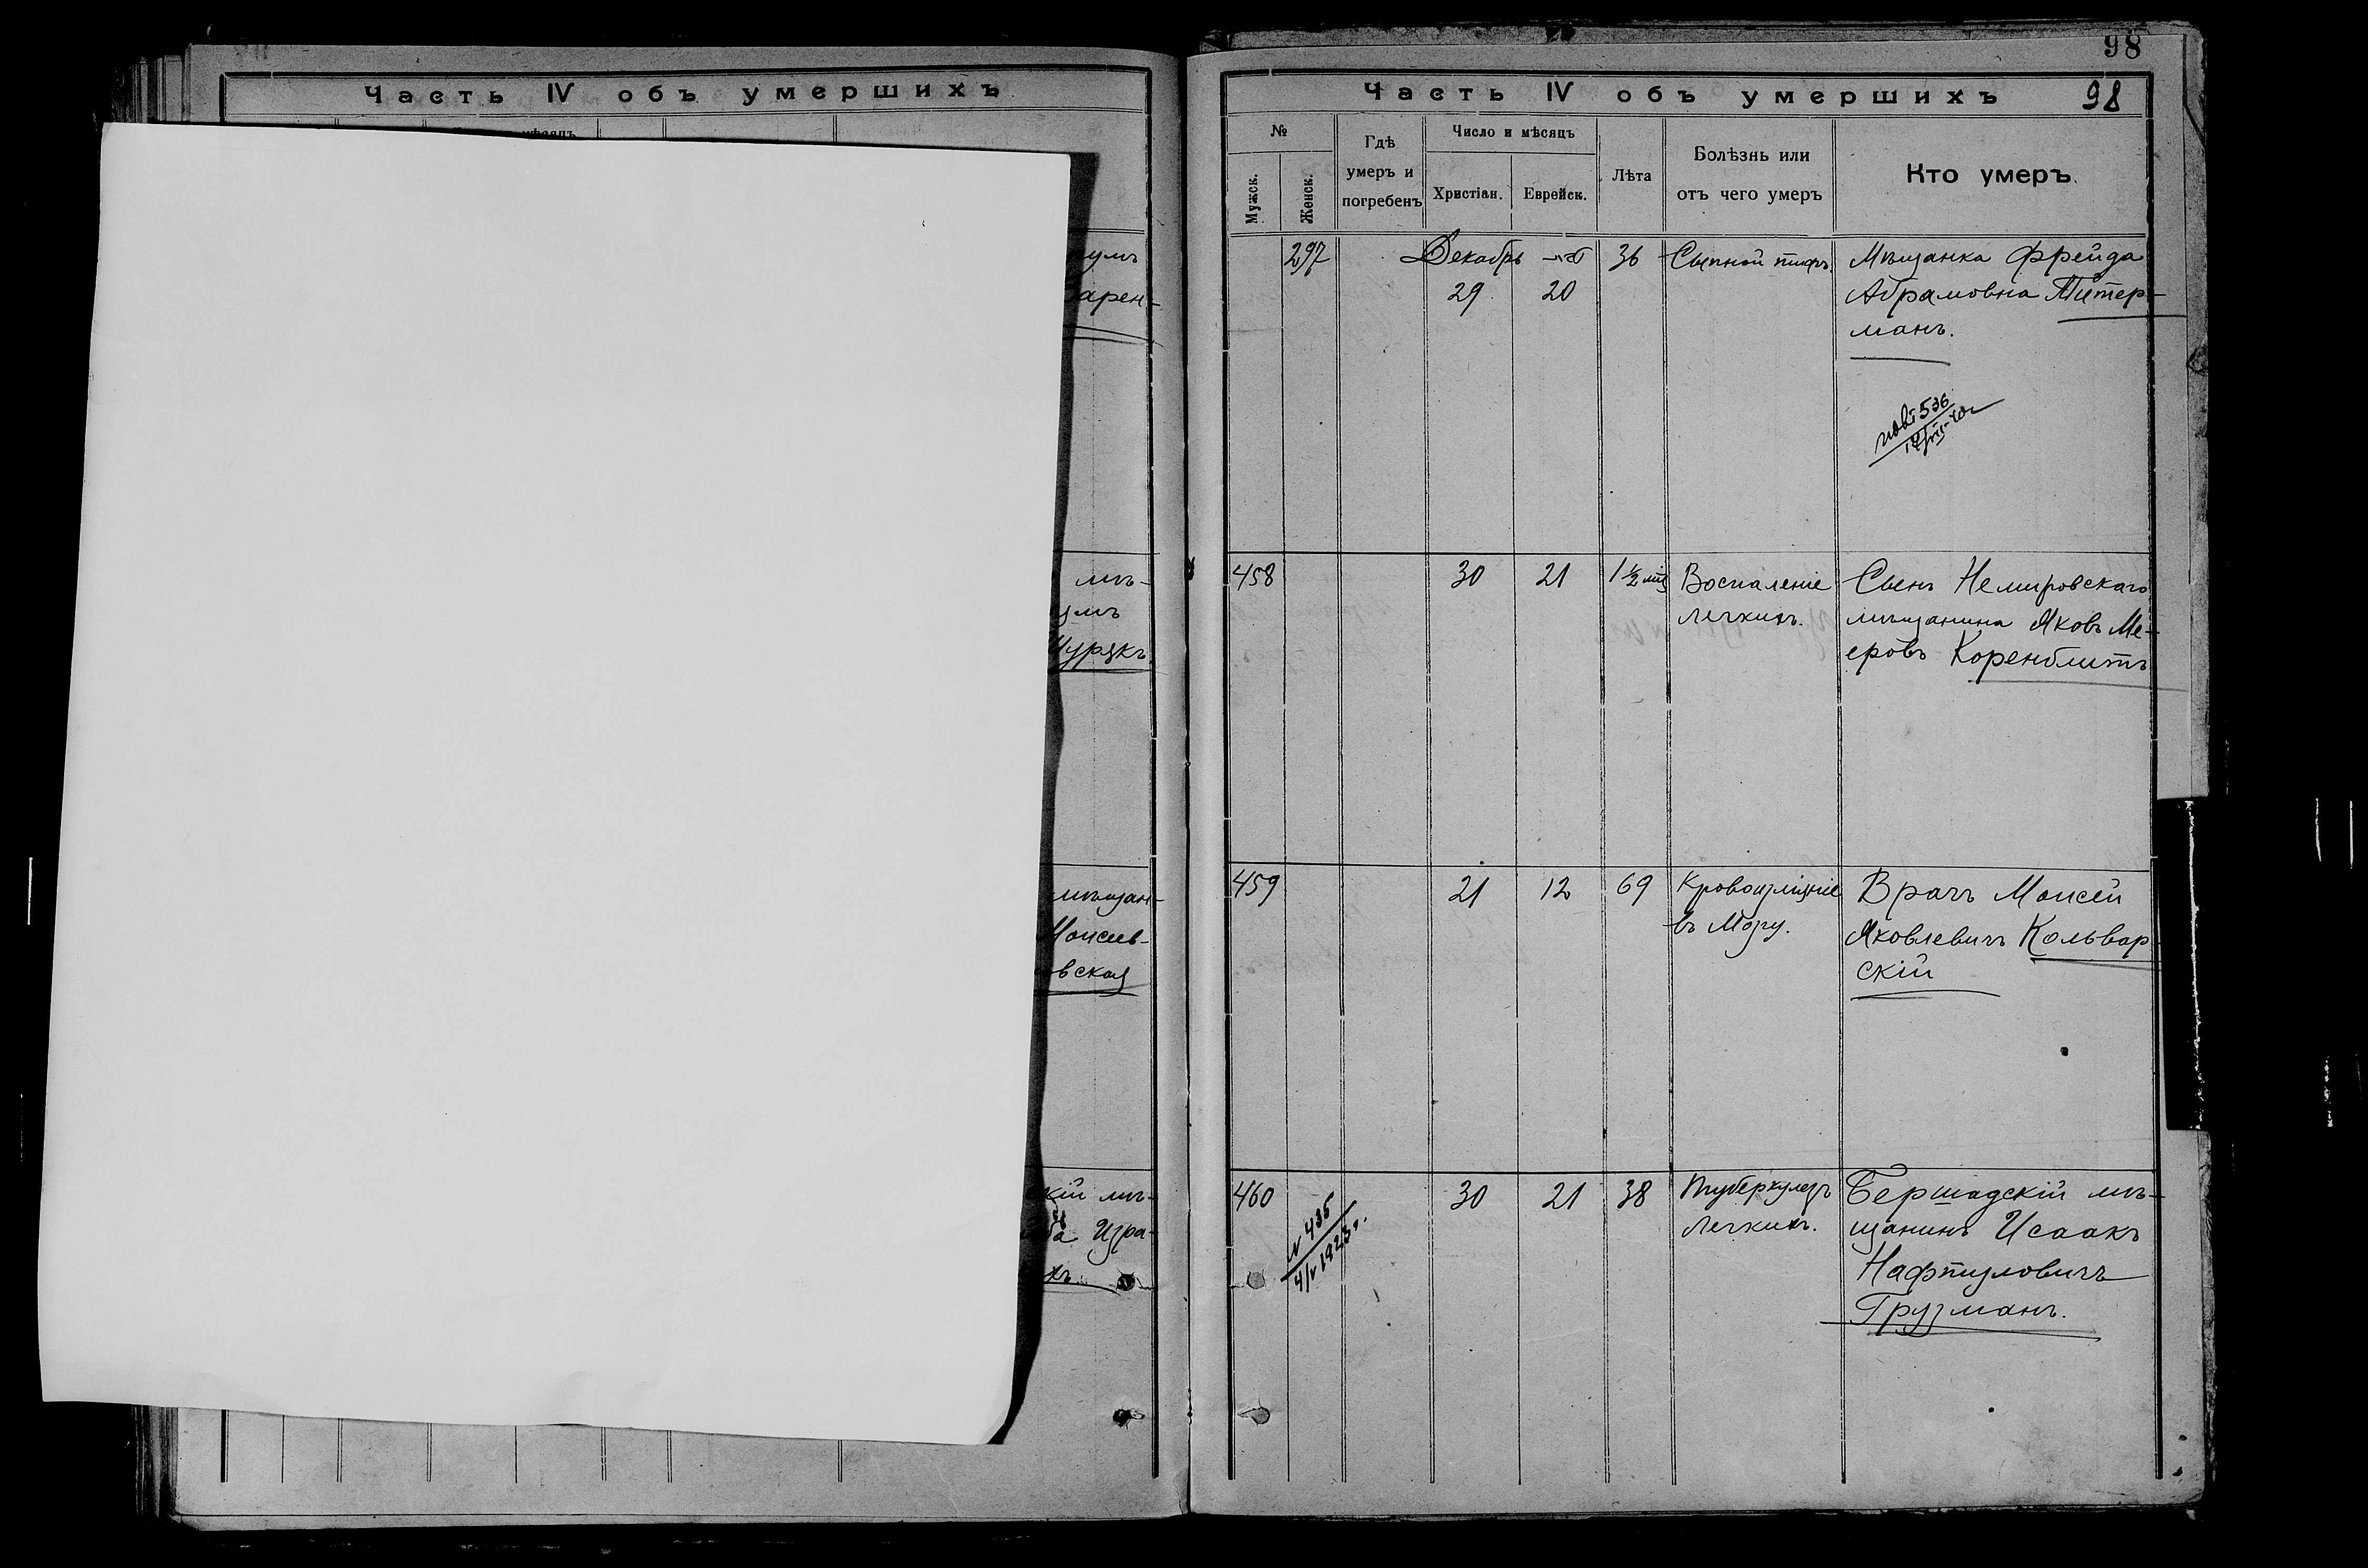 Часть IV объ умершихъ
умъ
Зарен-
мѣ-
умъ
Цурукъ
мѣщан-
Моисеев-
вская
скій мѣ-
Изра-
хъ
98
Часть IV объ умершихъ 98
№
Мужск.
Женск.
Гдѣ умеръ и погребенъ
Число и мѣсяцъ
Христіан.
Еврейск.
Лѣта
Болѣзнь или отъ чего умеръ
Кто умеръ
297 Декабрь 36 Сыпной тифъ. Мѣщанка Фрейда
29 20 Абрамовна Питер-
манъ.
536
458 30 21 1 ½ мц Воспаленіе Сынъ Немировскаго
легкихъ. мѣщанина Яковъ Ме-
еровъ Коренблитъ
459 21 12 69 Кровоизліяніе Врачъ Моисей
въ мозгу. Яковлевичъ Кольвар-
скій
460 30 21 38 Туберкулезъ Бершадскій мѣ-
легкихъ. щанинъ Исаакъ
Нафтуловичъ
Грузманъ.
№ 435
4/V 1923 г.